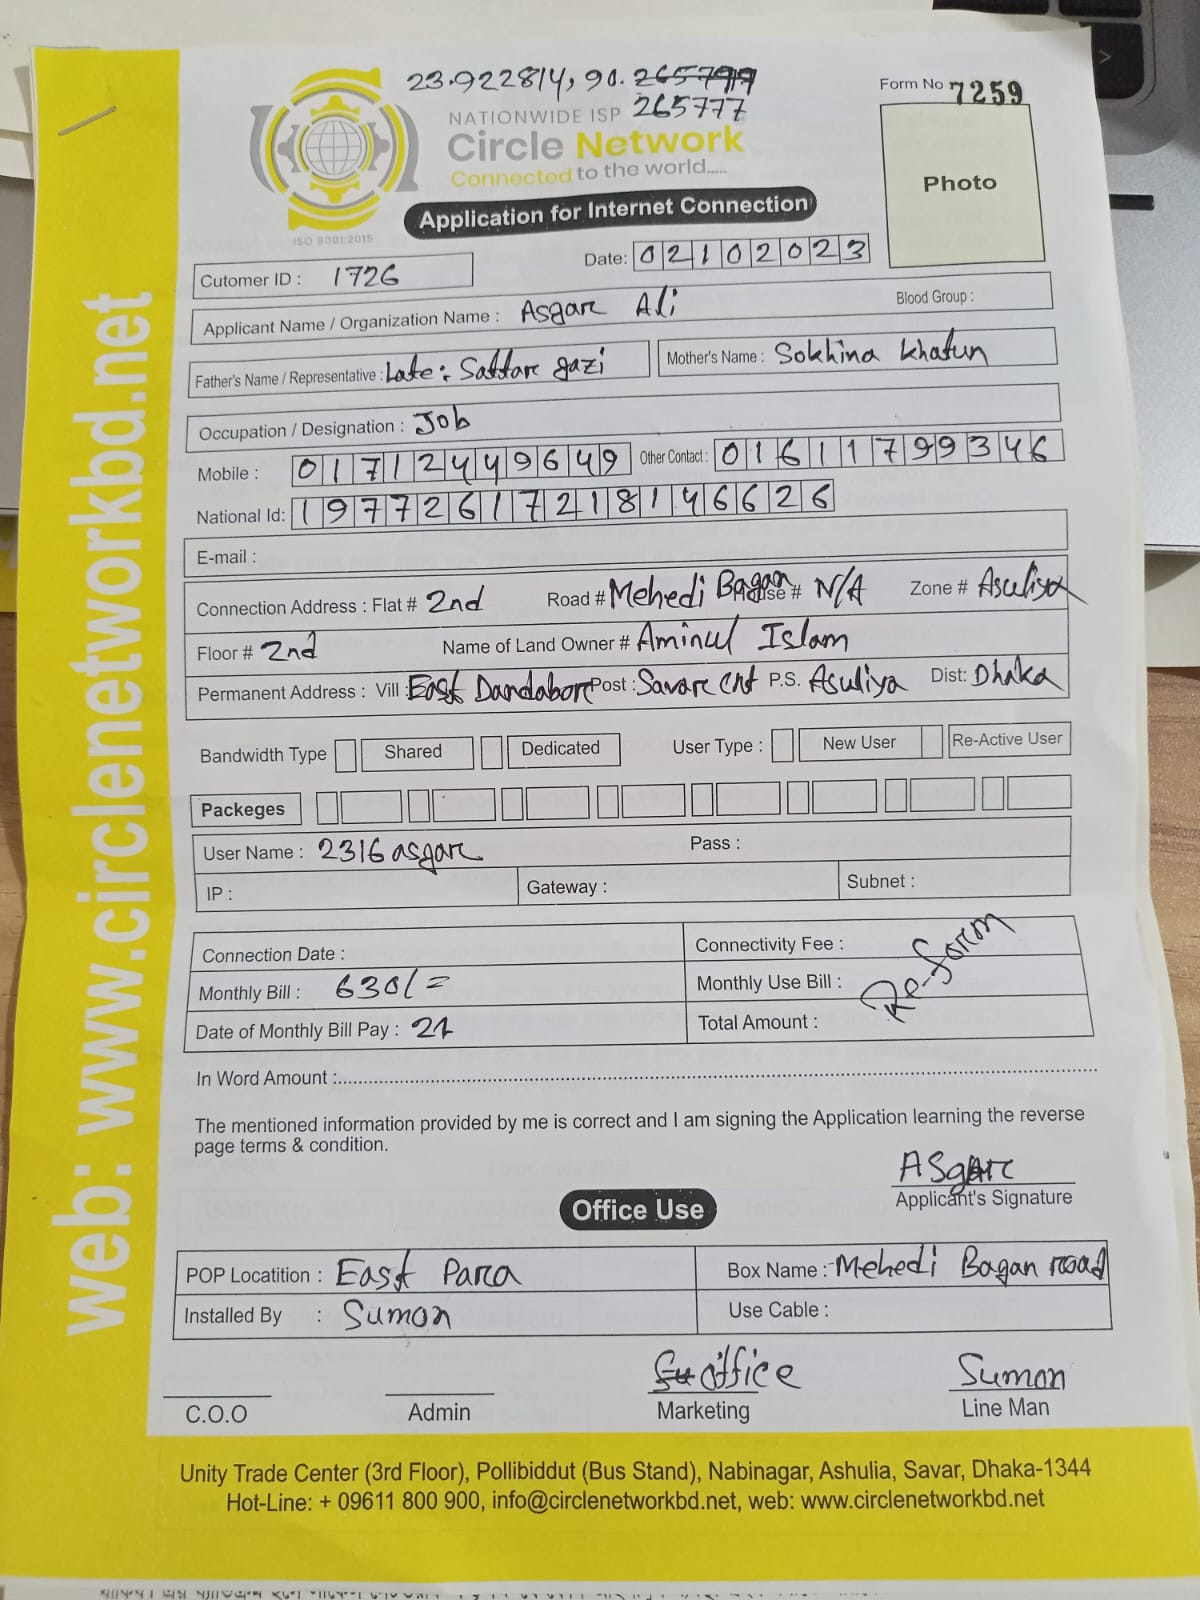 23.922814, 90.265799
265777
Form No 7259
NATIONWIDE ISP
Circle Network
Connected to the world.....
ISO 9001:2015
Photo
Application for Internet Connection
Date: 02102023
Cutomer ID : 1726
Applicant Name / Organization Name : Asgar Ali Blood Group :
Father's Name / Representative : Late: Sattar gazi Mother's Name : Sokhina Khatun
Occupation / Designation : Job
Mobile : 01712449649 Other Contact : 01611799346
National Id: 19772617218146626
E-mail :
Connection Address : Flat # 2nd Road # Mehedi Bagan House # N/A Zone # Asuliya
Floor # 2nd Name of Land Owner # Aminul Islam
Permanent Address : Vill : East Dandabor Post : Savar Cnt P.S. Asuliya Dist: Dhaka
Bandwidth Type Shared Dedicated User Type : New User Re-Active User
Packeges
User Name : 2316asgar Pass :
IP : Gateway : Subnet :
Connection Date : Connectivity Fee :
Monthly Bill : 630/= Monthly Use Bill :
Re-form
Date of Monthly Bill Pay : 21 Total Amount :
In Word Amount :
The mentioned information provided by me is correct and I am signing the Application learning the reverse
page terms & condition.
Asgar
Applicant's Signature
Office Use
POP Locatition : East Para Box Name : Mehedi Bagan road
Installed By : Sumon Use Cable :
office Sumon
C.O.O Admin Marketing Line Man
Unity Trade Center (3rd Floor), Pollibiddut (Bus Stand), Nabinagar, Ashulia, Savar, Dhaka-1344
Hot-Line: + 09611 800 900, info@circlenetworkbd.net, web: www.circlenetworkbd.net
web: www.circlenetworkbd.net